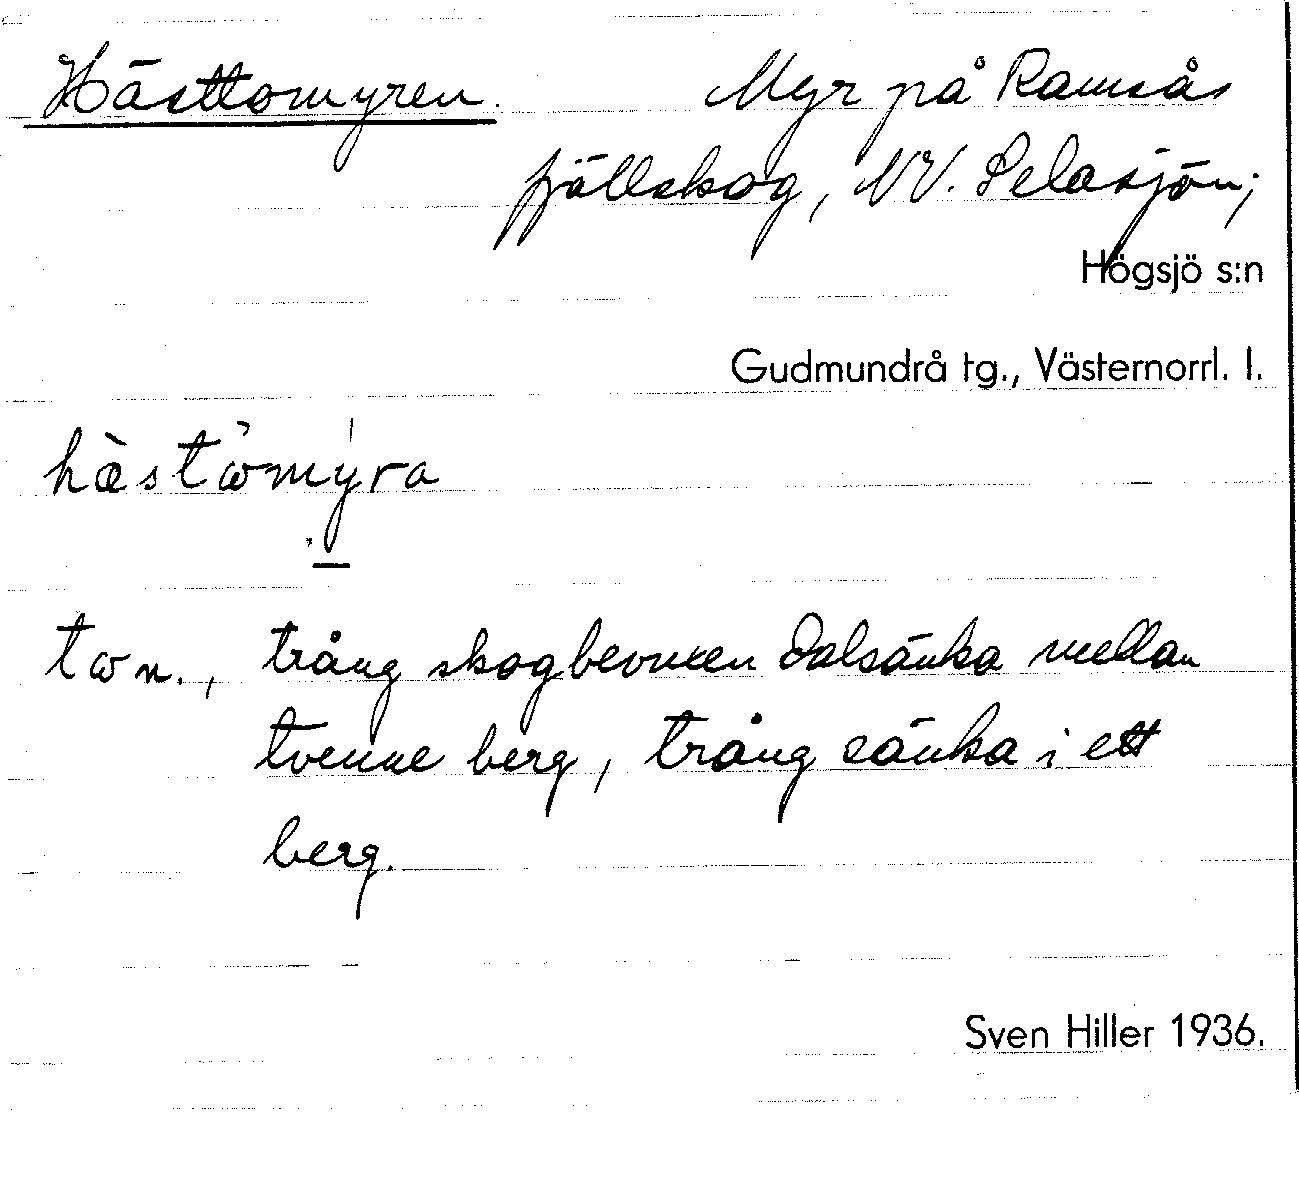 Hästtomyren. Myr på Ramsås
fjällskog, NV. Selasjön;
Högsjö s:n
Gudmundrå tg., Västernorrl. l.
hæ̀stὼmýra
tωn., trång skogbevuxen dalsänka mellan
tvenne berg, trång sänka i ett
berg.
Sven Hiller 1936.